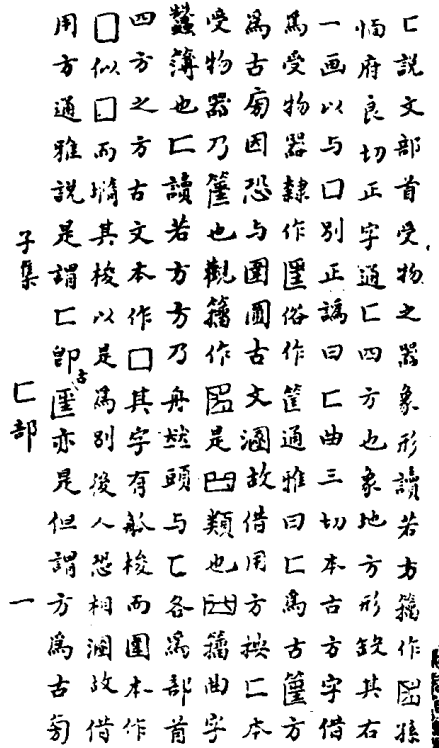 匚說文部首受物之器象形讀若方籒作𠥓孫
愐府良切正字通匚四方也象地方形缺其右
一画以与口別正譌曰匚曲三切本古方字借
爲受物器隸作匩俗作筐通雅曰匚爲古方
爲古因恐与圍圓古文溷故借用方按匚本
受物器乃也觀籒作𠥓是類也籒曲字
蠶薄也匚讀若方方乃舟竝頭与匸各爲部首
四方之方古文本作囗其字有觚棱而圍本作
囗似囗而墮其棱以是爲別後人恐相溷故借
用方通雅說是謂匚卽古匩亦是但謂方爲古
子集 匚部 一